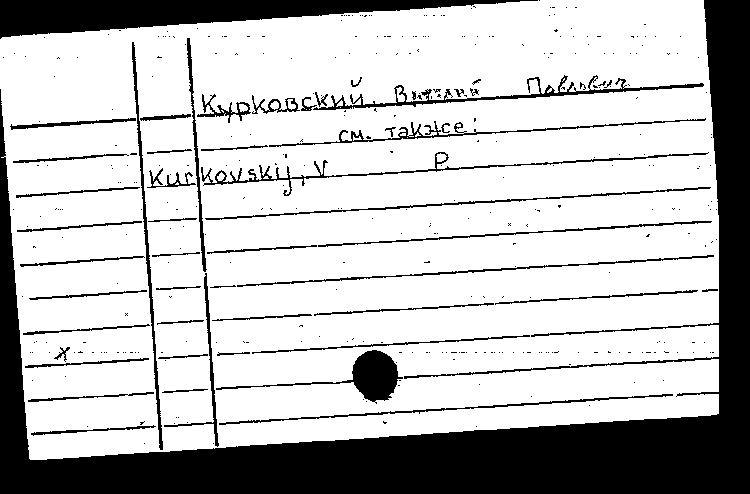 Курковский, Виталий Павлович
см. также:
Kurkovskij, V P.
x